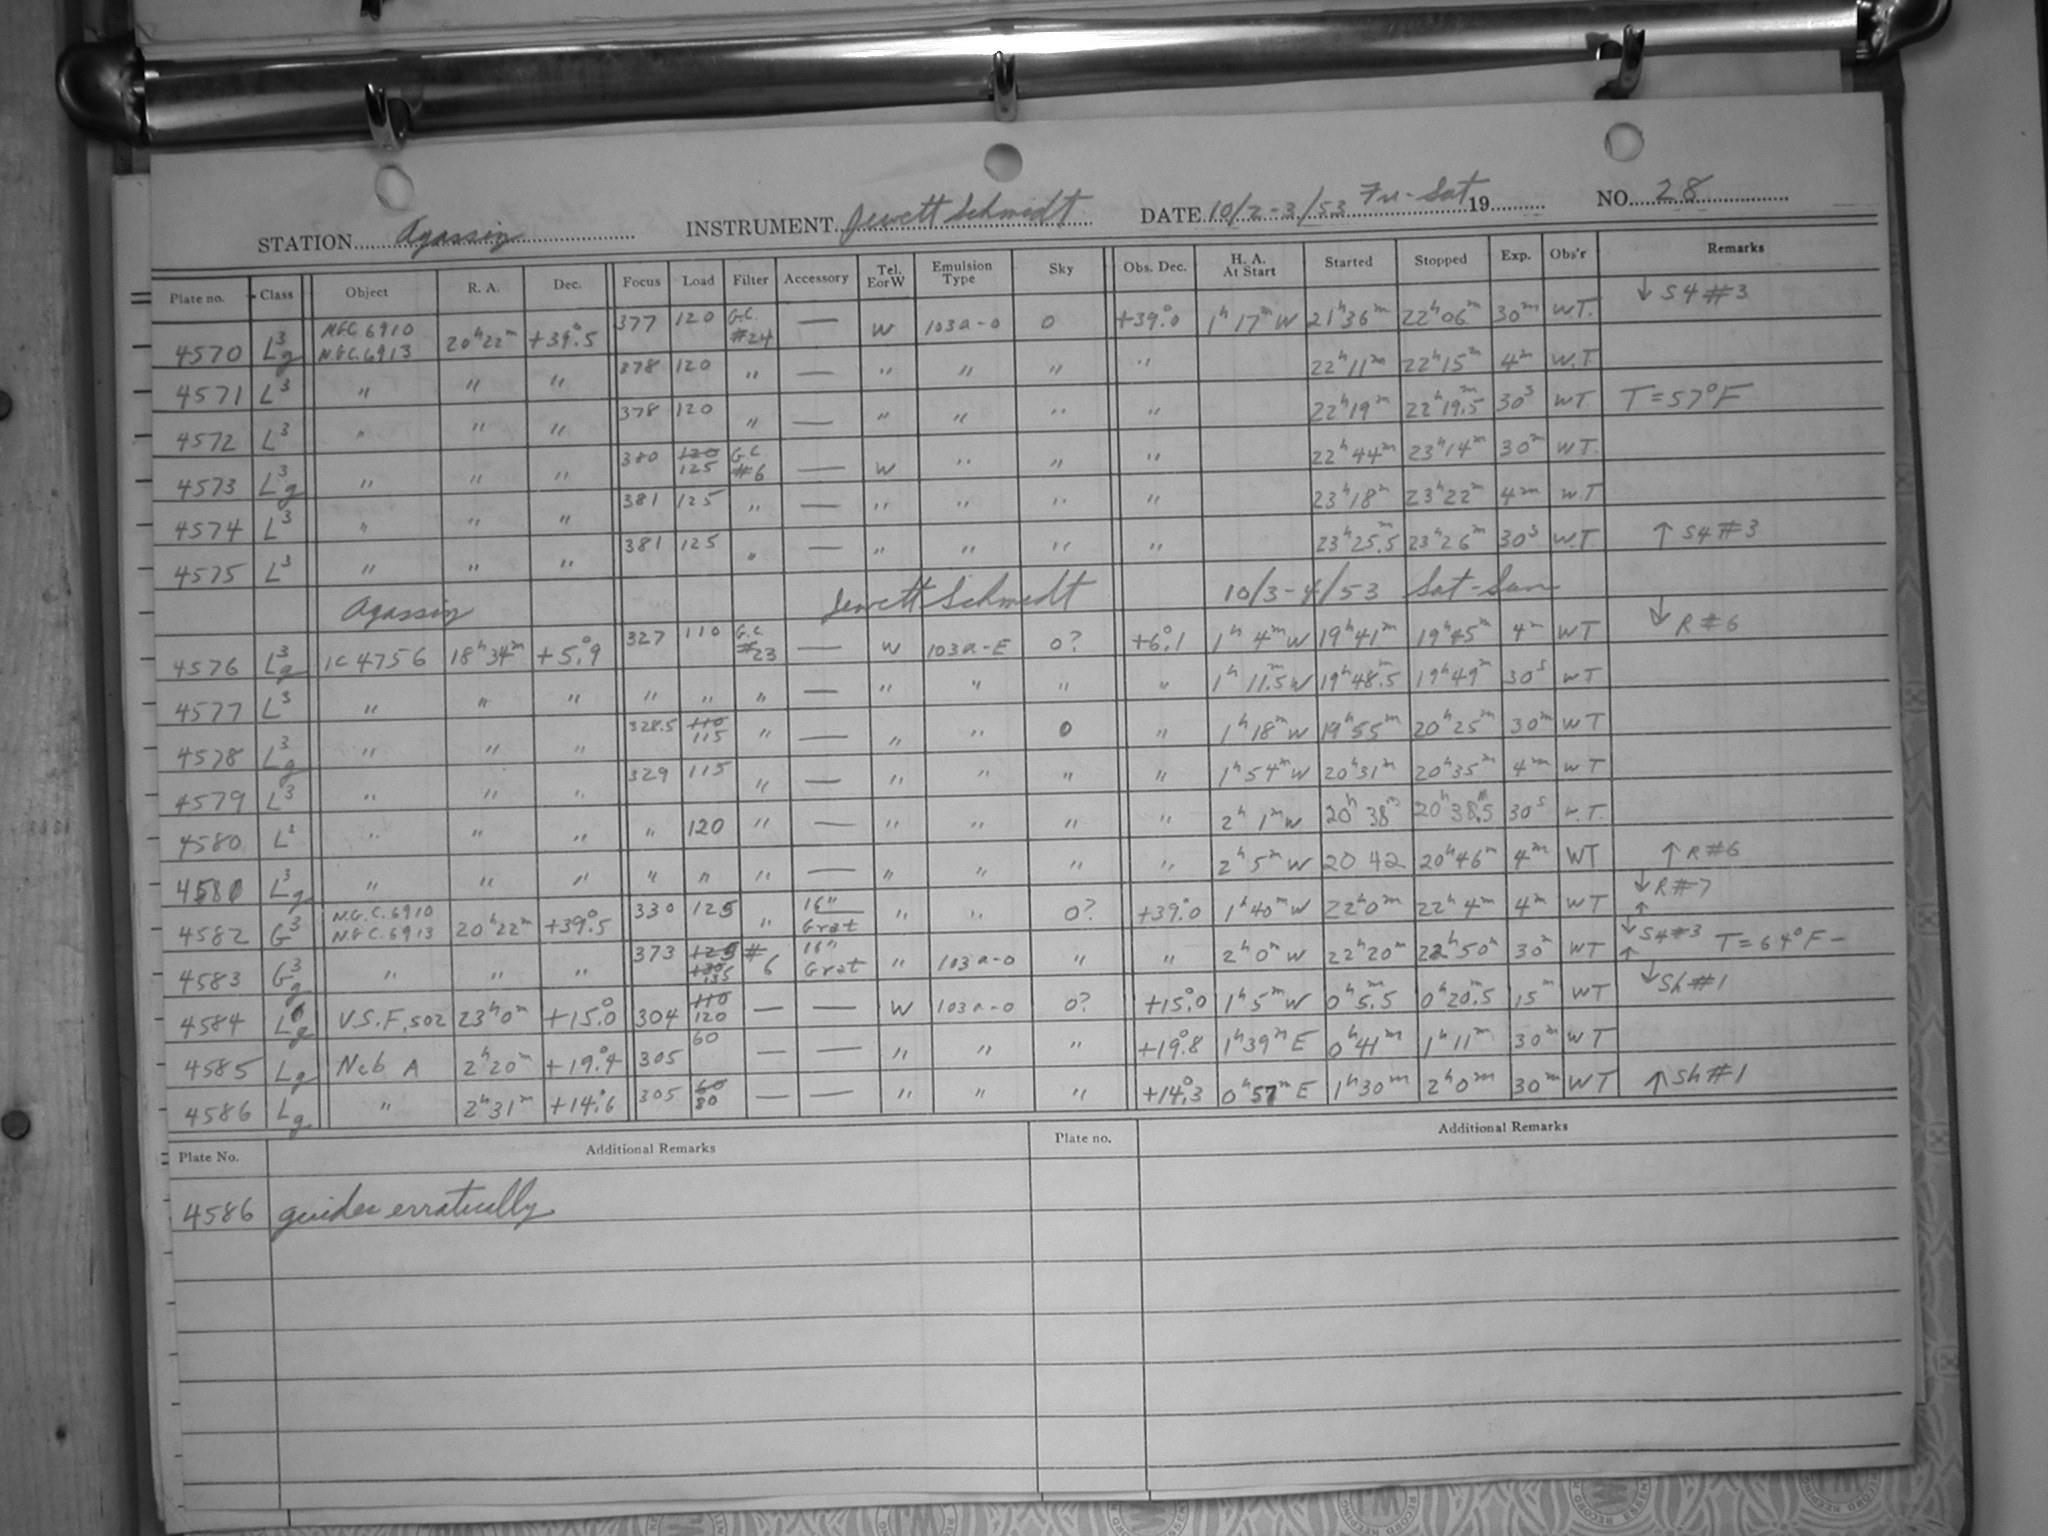 STATION Agassiz INSTRUMENT Jewett Schmidt DATE 10/2-3/53 Fri-Sat 19 NO. 28
Plate no. Class Object R. A. Dec. Focus Load Filter Accessory Tel. EorW Emulsion Type Sky Obs. Dec. H. A. At Start Started Stopped Exp. Obs'r Remarks
4570 L³g N.G.C. 6910 N.G.C. 6913 20ʰ22ᵐ +39°.5 377 120 G.C. #24 — W 103a-O 0 +39°.0 1ʰ17ᵐW 21ʰ36ᵐ 22ʰ06ᵐ 30ᵐ WT. ↓ S4 #3
4571 L³ " " " 378 120 " — " " " " 22ʰ11ᵐ 22ʰ15ᵐ 4ᵐ W.T
4572 L³ " " " 378 120 " — " " " " 22ʰ19ᵐ 22ʰ19.5ᵐ 30ˢ WT. T=57°F
4573 L³g " " " 380 120 125 G.C. #6 — W " " " 22ʰ44ᵐ 23ʰ14ᵐ 30ᵐ WT.
4574 L³ " " " 381 125 " — " " " " 23ʰ18ᵐ 23ʰ22ᵐ 4ᵐ WT
4575 L³ " " " 381 125 " — " " " " 23ʰ25.5ᵐ 23ʰ26ᵐ 30ˢ W.T. ↑ S4 #3
Agassiz Jewett Schmidt 10/3-4/53 Sat-Sun
4576 L³g IC 4756 18ʰ34ᵐ +5°.9 327 110 G.C. #23 — W 103a-E 0? +6°.1 1ʰ4ᵐW 19ʰ41ᵐ 19ʰ45ᵐ 4ᵐ WT ↓ R #6
4577 L³ " " " " " " — " " " " 1ʰ11.5ᵐW 19ʰ48.5ᵐ 19ʰ49ᵐ 30ˢ WT
4578 L³g " " " 328.5 110 115 " — " " 0 " 1ʰ18ᵐW 19ʰ55ᵐ 20ʰ25ᵐ 30ᵐ WT
4579 L³ " " " 329 115 " — " " " " 1ʰ54ᵐW 20ʰ31ᵐ 20ʰ35ᵐ 4ᵐ WT
4580 L² " " " " 120 " — " " " " 2ʰ1ᵐW 20ʰ38ᵐ 20ʰ38.5ᵐ 30ˢ W.T.
4581 L³g " " " " " " — " " " " 2ʰ5ᵐW 20 42 20ʰ46ᵐ 4ᵐ WT ↑ R #6
4582 G³ N.G.C. 6910 N.G.C. 6913 20ʰ22ᵐ +39°.5 330 125 " 16" Grat " " 0? +39°.0 1ʰ40ᵐW 22ʰ0ᵐ 22ʰ4ᵐ 4ᵐ WT ↓ R #7 ↑
4583 G³g " " " 373 125 130 135 #6 16" Grat " 103a-O " " 2ʰ0ᵐW 22ʰ20ᵐ 22ʰ50ᵐ 30ᵐ WT ↓ S4 #3 ↑ T=64°F-
4584 Lg V.S.F. 502 23ʰ0ᵐ +15°.0 304 110 120 — — W 103a-O 0? +15°.0 1ʰ5ᵐW 0ʰ5.5 0ʰ20.5 15ᵐ WT ↓ Sh #1
4585 Lg Neb A 2ʰ20ᵐ +19°.4 305 60 — — " " " +19.8 1ʰ39ᵐE 0ʰ41ᵐ 1ʰ11ᵐ 30ᵐ WT
4586 Lg " 2ʰ31ᵐ +14°.6 305 60 80 — — " " " +14°.3 0ʰ57ᵐE 1ʰ30ᵐ 2ʰ0ᵐ 30ᵐ WT ↑ Sh #1
Plate No. Additional Remarks Plate no. Additional Remarks
4586 guider erratically